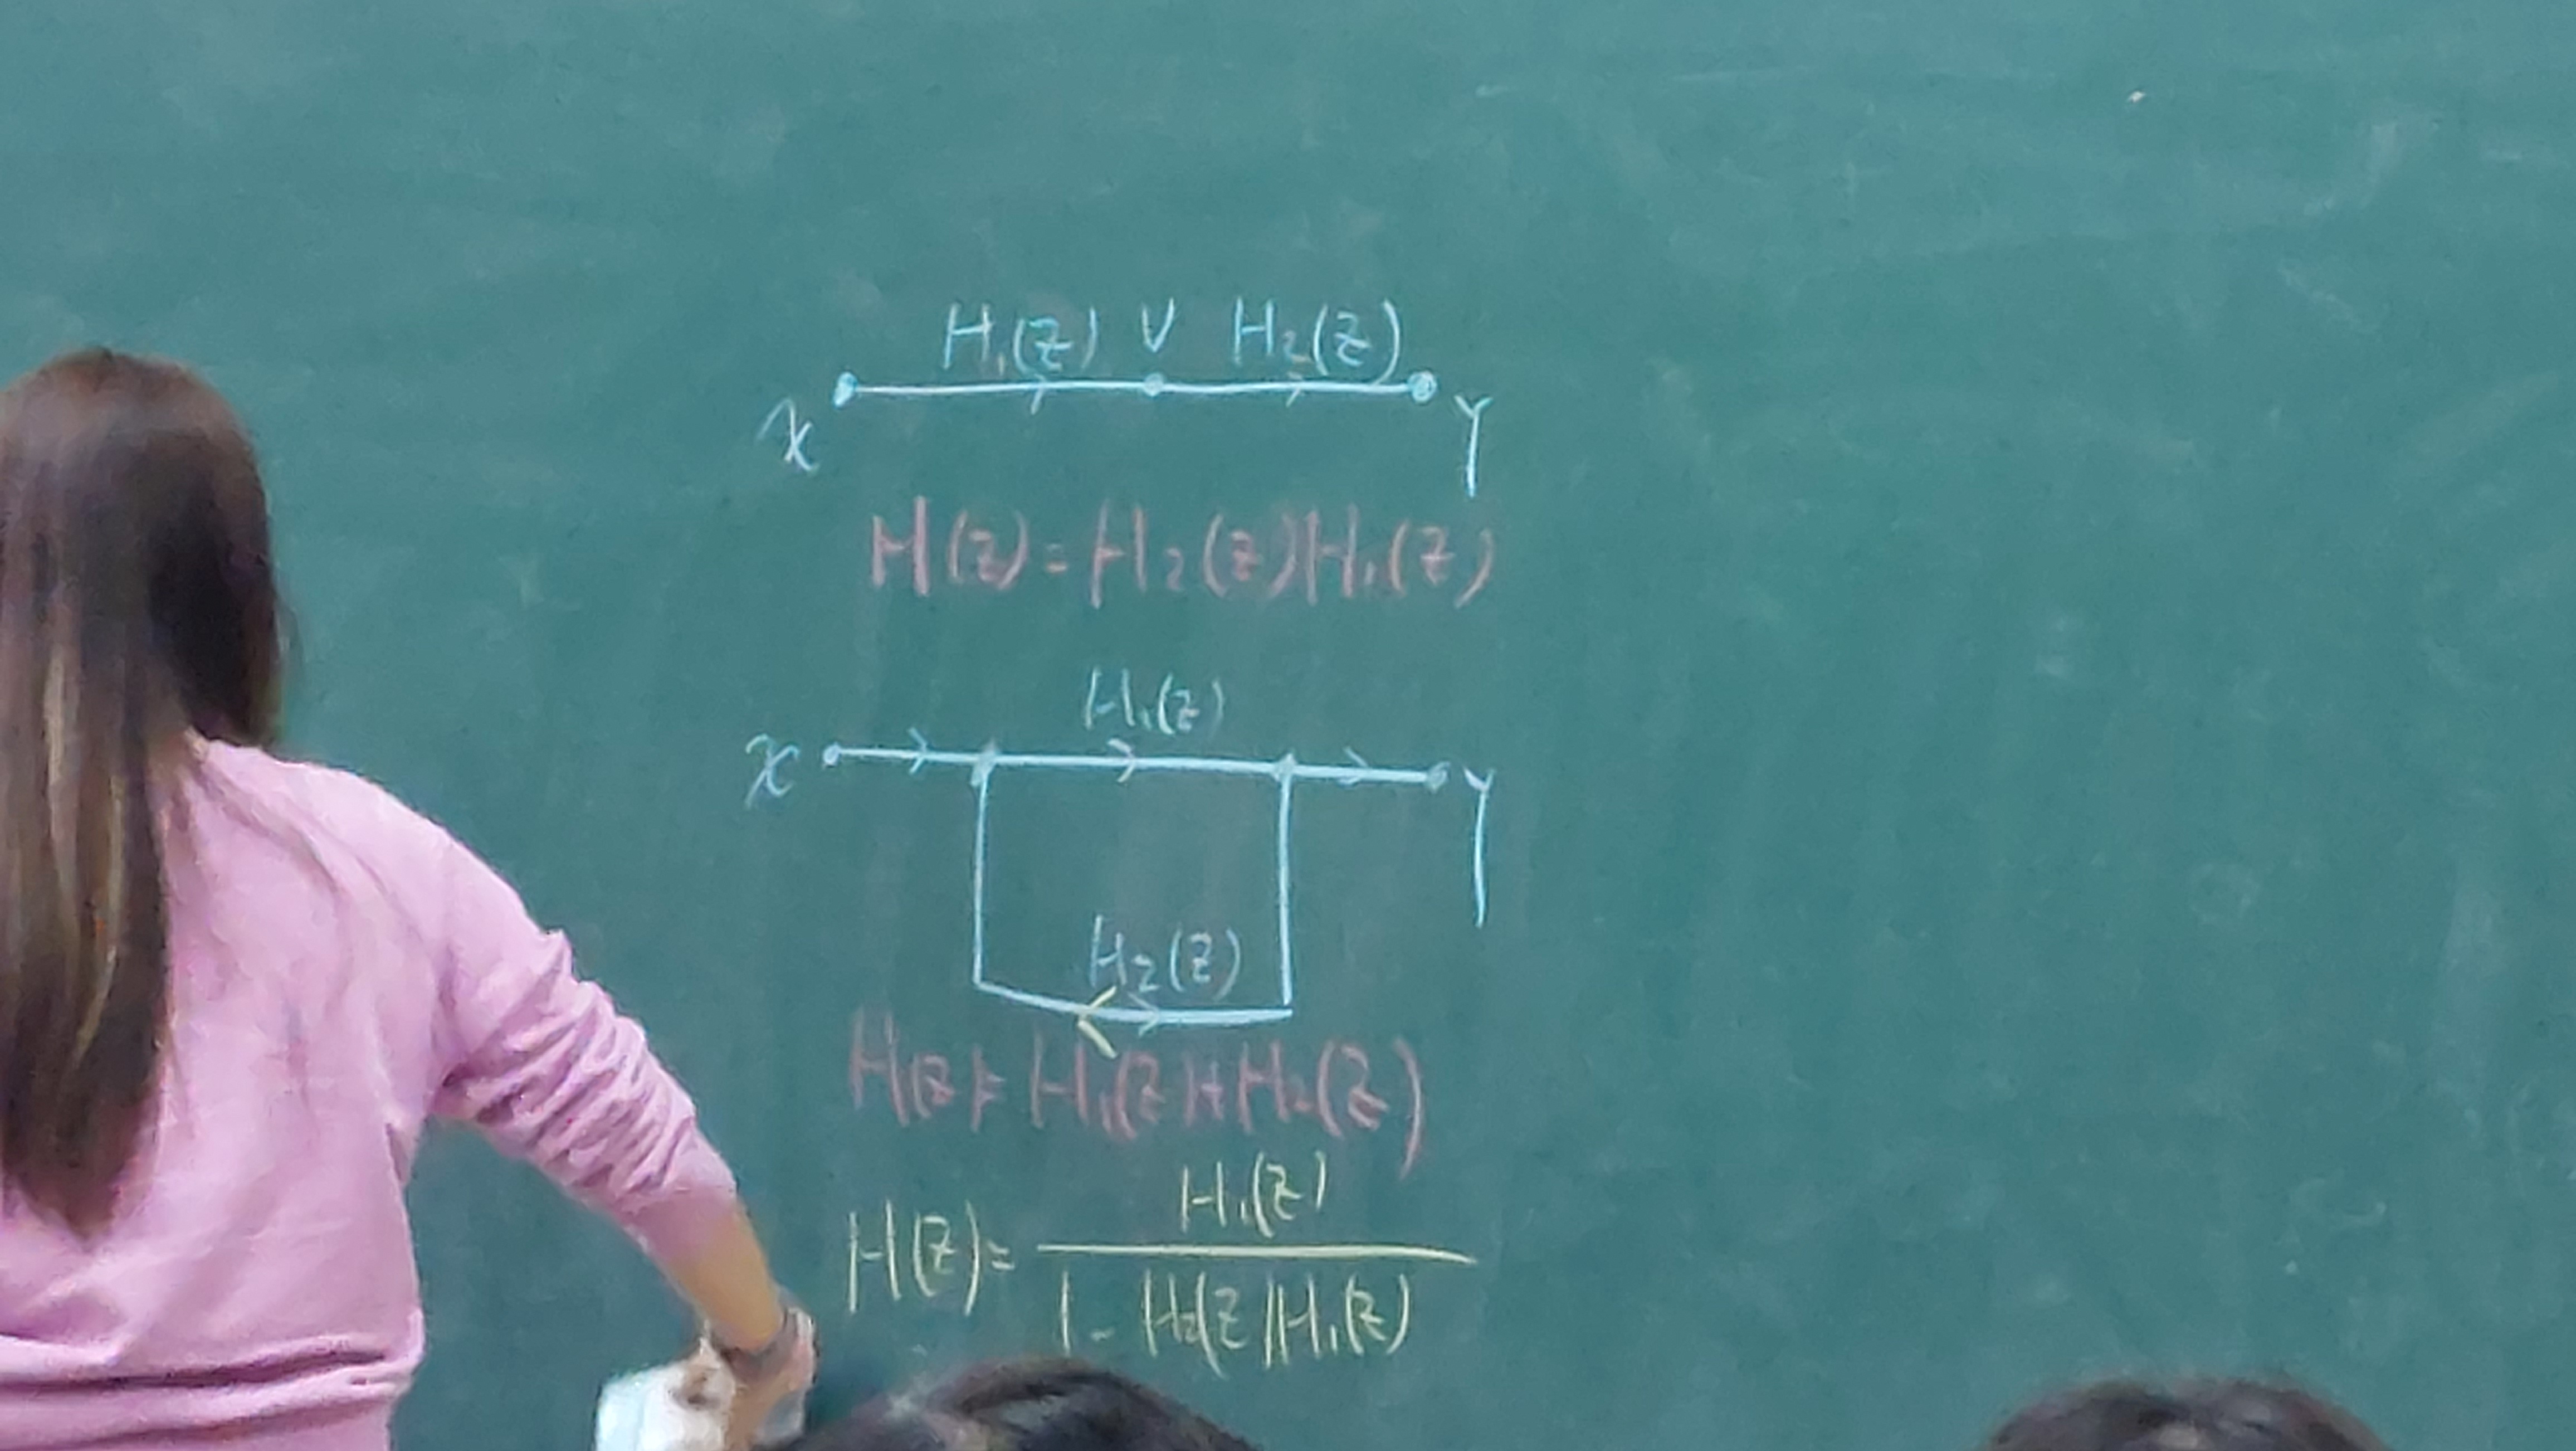 H₁(z) V H₂(z)
X Y
H(z)=H₂(z)H₁(z)
H₁(z)
X Y
H₂(z)
H(z)=H₁(z)+H₂(z)
H(z)= H₁(z)
1-H₂(z)H₁(z)